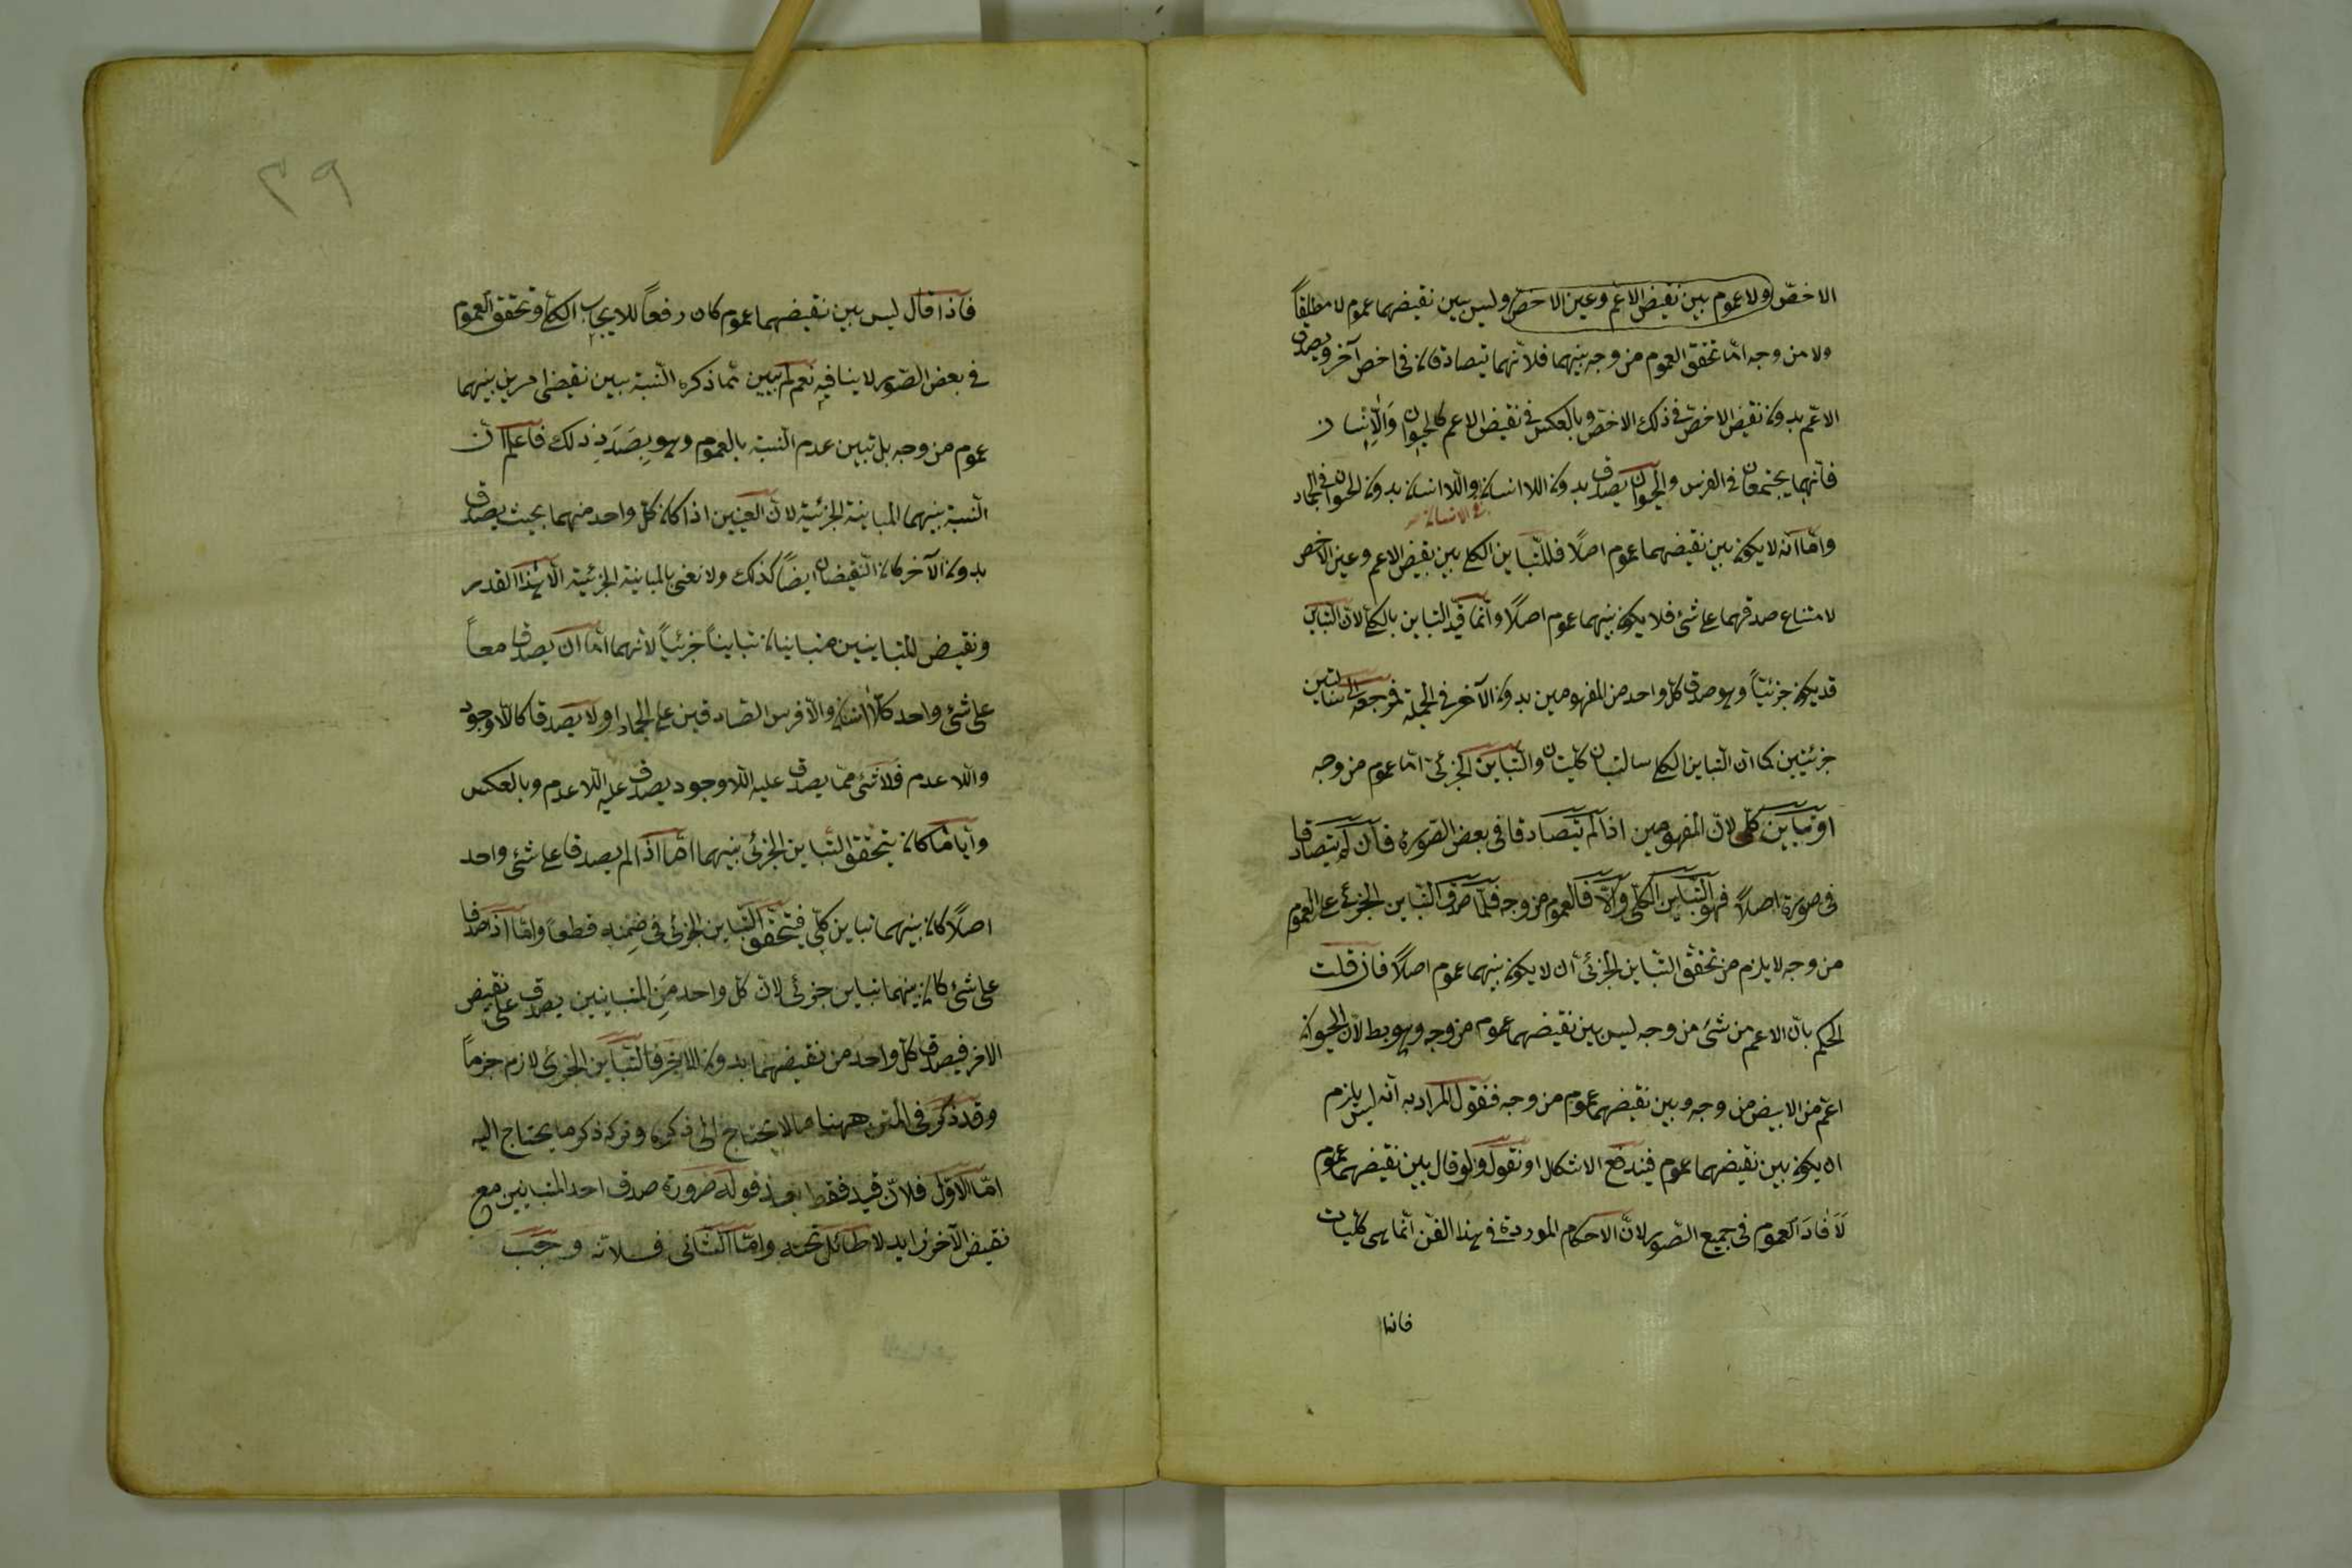 الاخصّ ولا عموم بين نقيض الاعم وعين الاخصّ وليس بين نقيضهما عموم لا مطلقاً
ولا من وجه امّا تحقق العموم من وجه بينهما فلانّهما يتصادقان فى اخص آخر ويصدق
الاعمّ بدون نقيض الاخصّ فى ذلك الاخصّ وبالعكس فى نقيض الاعم كالحيوان واللاانسان
فانّهما يجتمعان فى الفرس والحيوان يصدق بدون اللاانسان واللاانسان بدون الحيوان فى الجماد
فى الانسان
وامّا انّه لا يكون بين نقيضهما عموم اصلًا فللتّباين الكلى بين نقيض الاعم وعين الاخص
لامتناع صدقهما على شئ فلا يكون بينهما عموم اصلًا وانّما قيّد التباين بالكلّى لانّ التباين
قد يكون جزئيّاً وهو صدق كلّ واحد من المفهومين بدون الآخر فى الجملة فمرجعه الى سالبتين
جزئيتين كما انّ التباين الكلى سالبتان كليّتان والتّباين الجزئىّ امّا عموم من وجه
او تباين كلّى لانّ المفهومين اذا لم يتصادقا فى بعض الصّورة فان لم يتصادقا
فى صورة اصلًا فهو التّباين الكلّى والّا فالعموم من وجه فلمّا صدق التباين الجزئى على العموم
من وجه لا يلزم من تحقّق التباين الجزئى ان لا يكون بينهما عموم اصلًا فان قلت
الحكم بانّ الاعم من شئ من وجه ليس بين نقيضهما عموم من وجه وهو بط لانّ الحيوان
اعمّ من الابيض من وجه وبين نقيضهما عموم من وجه فنقول المراد به انّه ليس يلزم
ان يكون بين نقيضهما عموم فيندفع الاشكال او نقول ولو قال بين نقيضهما عموم
لَاَفادَ العموم فى جميع الصّور لانّ الاحكام الموردة فى هذا الفنّ انّما هى كليّات
فاذا
٣٩
فاذا قال ليس بين نقيضهما عموم كان رفعاً للايجاب الكلّى وتحقق العموم
فى بعض الصّور لا ينافيه نعم لم يبين ممّا ذكره النّسبة بين نقيضى امرين بينهما
عموم من وجه بل تبين عدم النّسبة بالعموم وهو بِصَدَدِ ذلك فاعلم انّ
النّسبة بينهما المباينة الجزئية لانّ العينين اذا كان كلّ واحد منهما بحيث يصدق
بدون الآخر كان النّقيضان ايضاً كذلك ولا نعنى بالمباينة الجزئية الّا هذا القدر
ونقيض المتباينين متباينان تبايناً جزئيّاً لانّهما امّا ان يصدقا معاً
على شئ واحد كاللّاانسان واللّافرس الصّادقين على الجماد او لا يصدقا كاللّاوجود
واللا عدم فلا شئ ممّا يصدق عليه اللاوجود يصدق عليه اللا عدم وبالعكس
وايّاما كان يتحقق التّباين الجزئى بينهما امّا اذا لم يصدقا على شئ واحد
اصلًا كان بينهما تباين كلّى فيتحقق التّباين الجزئى فى ضمنه قطعا وامّا اذا صدقا
على شئ كان بينهما تباين جزئى لانّ كلّ واحد من المتباينين يصدق على نقيض
الاخر فيصدق كلّ واحد من نقيضهما بدون الآخر فالتّباين الجزئى لازم جزماً
وقد ذكر فى المتن ههنا ما لا يحتاج الى ذكره وترك ذكر ما يحتاج اليه
امّا الاوّل فلانّ قيد فقط بعد قوله ضرورة صدق احد المتباينين مع
نقيض الآخر زايد لا طائل تحته وامّا الثّانى فلانّه وجب